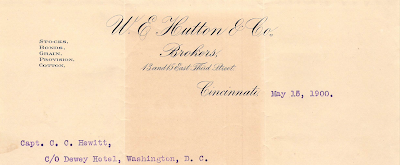 W. E. Hutton & Co.
Brokers,
STOCKS.
BONDS,
GRAIN,
PROVISION,
COTTON.
13 and 15 East Third Street
Cincinnati, May 15, 1900.
Capt. C. C. Hewitt,
C/O Dewey Hotel, Washington, D. C.